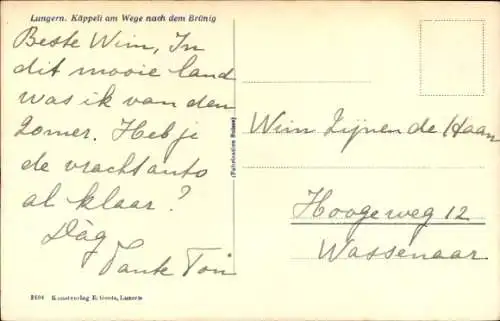 Lungern. Käppeli am Wege nach dem Brünig
Beste Wim, In
dit mooie land
was ik van den
zomer. Heb je
de vrachtauto
al klaar?
Dàg
Tante Ton
Wim Zijnen de Haan
Hoogeweg 12
Wassenaar
(Fabrication Suisse)
Kunstverlag E. Goetz, Luzern